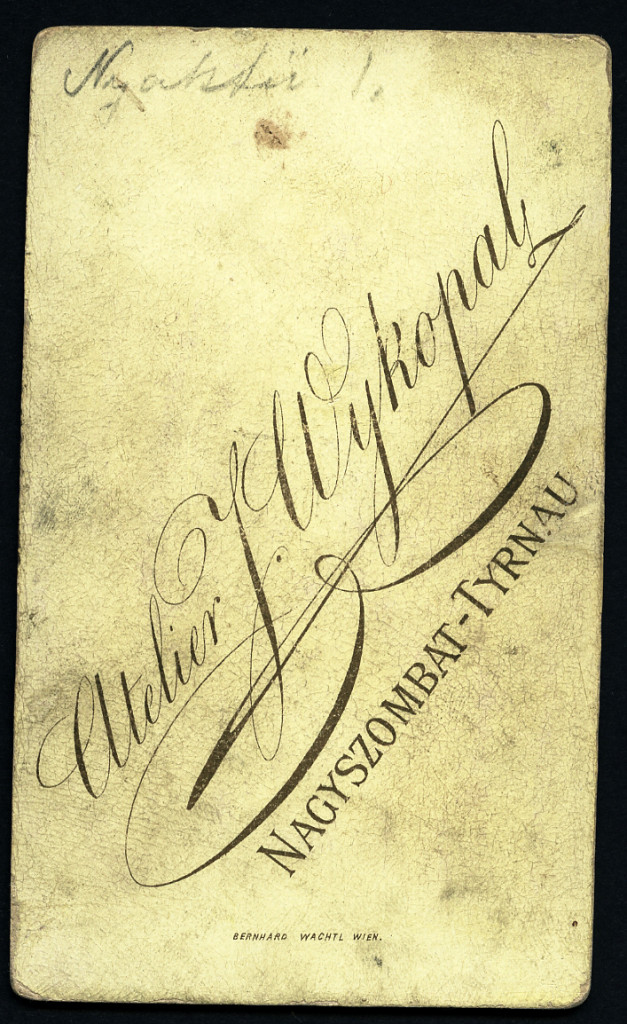 Atelier J. Wykopal
NAGYSZOMBAT-TYRNAU
BERNHARD WACHTL WIEN.